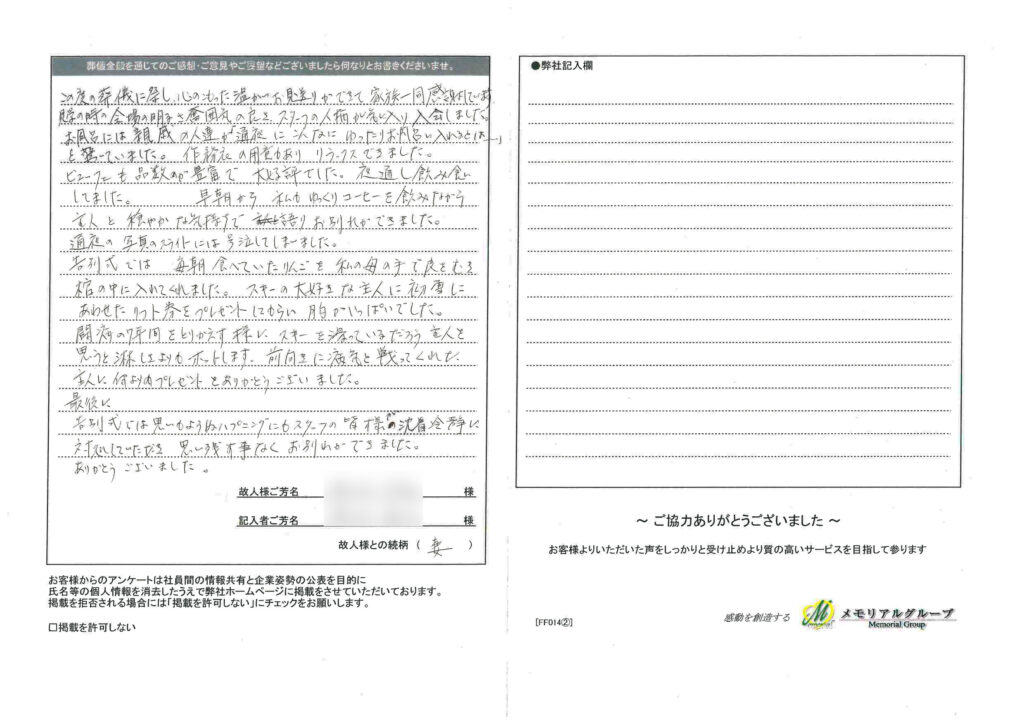 葬儀全般を通じてのご感想・ご意見やご要望などございましたら何なりとお書きくださいませ。
この度の葬儀に際し、心のこもった温かいお見送りができて家族一同感謝しています。
の時の会場の明るさ雰囲気の良さ、スタッフの人柄が気に入り入会しました。
お風呂には親戚の人達が「通夜にこんなにゆったりお風呂に入れるとは…」
と驚いていました。作務衣の用意もありリラックスできました。
ビュッフェも品数が豊富で大好評でした。夜通し飲み食い
してました。 早朝から私もゆっくりコーヒーを飲みながら
主人と穏やかな気持ちで語りお別れができました。
通夜の写真のスライドには号泣してしまいました。
告別式では毎朝食べていたりんごを私の母の手で皮をむき
棺の中に入れてくれました。スキーの大好きな主人に初雪に
あわせたリフト券をプレゼントしてもらい胸がいっぱいでした。
闘病の7年間をとりかえす様に スキーを滑っているだろう主人を
思うと淋しさよりもホットします。前向きに病気と戦ってくれた
主人に何よりのプレゼントをありがとうございました。
最後に
告別式では思いもよらぬハプニングにもスタッフの皆様が沈着冷静に
対処していただき思い残す事なくお別れができました。
ありがとうございました。
故人様ご芳名 様
記入者ご芳名 様
故人様との続柄 ( 妻 )
お客様からのアンケートは社員間の情報共有と企業姿勢の公表を目的に
氏名等の個人情報を消去したうえで弊社ホームページに掲載をさせていただいております。
掲載を拒否される場合には「掲載を許可しない」にチェックをお願いします。
□掲載を許可しない
●弊社記入欄
～ ご協力ありがとうございました ～
お客様よりいただいた声をしっかりと受け止めより質の高いサービスを目指して参ります
[FF014②]
感動を創造する
メモリアルグループ
Memorial Group